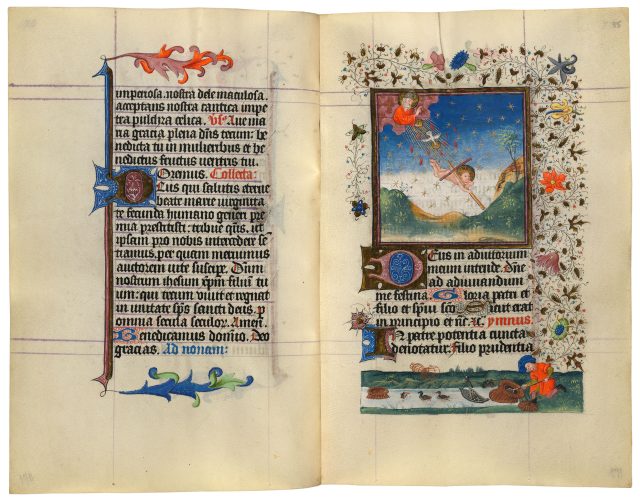 imperosa. nostra dele maculosa.
acceptans nostra cantica impe
tra pulchra celica. Vs. Aue ma
ria gracia plena dns tecum: be
nedicta tu in mulieribus et be
nedictus fructus ventris tui.
Oremus. Collecta:
Deus qui salutis eterne
beate marie virginita
te fecunda humano generi pre
mia prestitisti: tribue qs. ut
ipsam pro nobis intercedere se
ciamus, per quem meruimus
auctorem vite suscipe. Dnm
nostrum ihesum xpm filiu tu
um: qui tecum vivit et regnat
in unitate sps sancti deus. p
omnia secula seculor. Amen.
Benedicamus domino. Deo
gracias. Ad nonem:
Deus in adiutorium
meum intende. Dne
ad adiuvandum
me festina. Gloria patri et
filio et spiu sco. Sicut erat
in principio et nc. Ymnus.
In patre potentia cuncta
denotatur. Filio prudentia